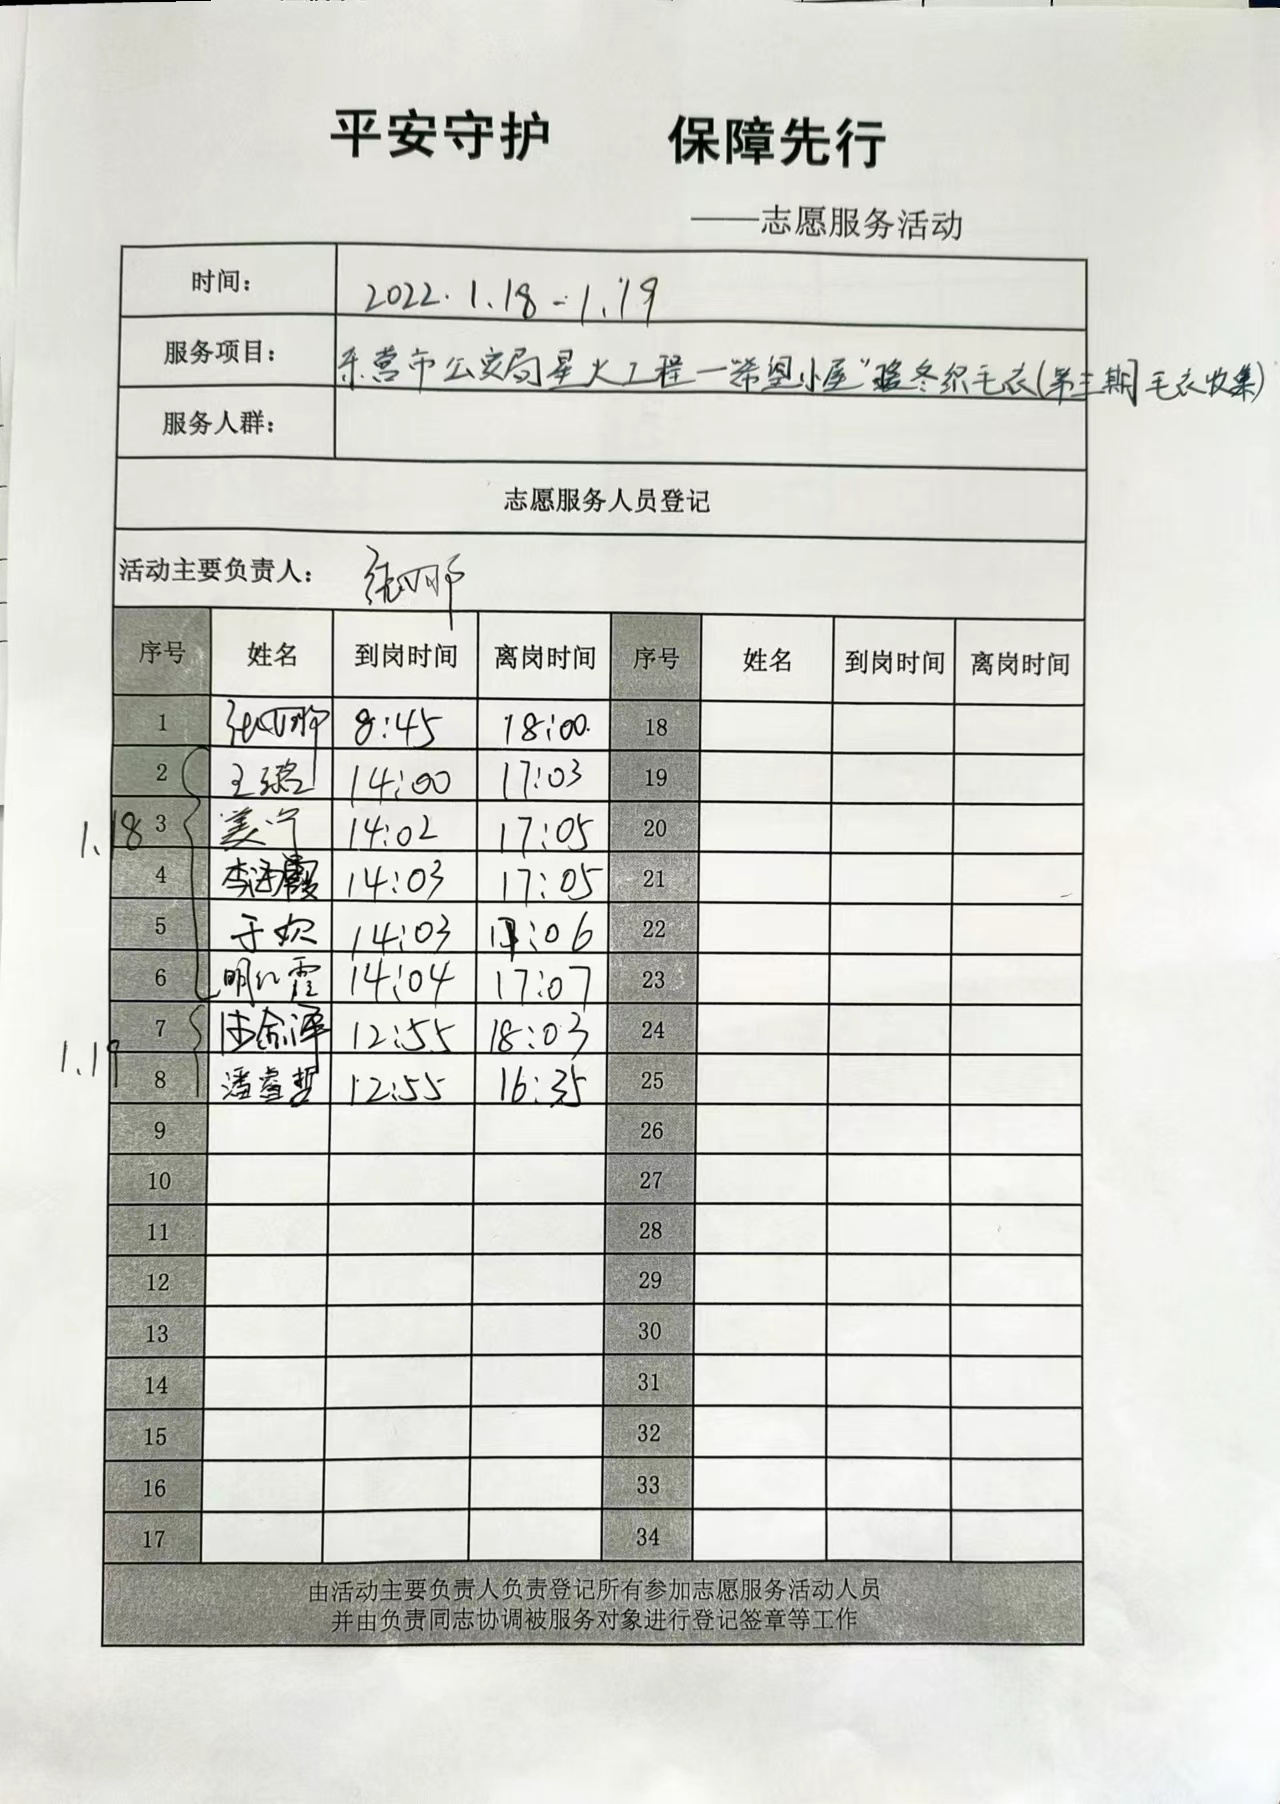 平安守护 保障先行
——志愿服务活动
时间: 2022.1.18-1.19
服务项目: 东营市公安局星火工程一"希望小屋"暖冬织毛衣(第三期毛衣收集)
服务人群:
志愿服务人员登记
活动主要负责人: 张娜
序号 姓名 到岗时间 离岗时间 序号 姓名 到岗时间 离岗时间
1 8:45 18:00 18
2 王璐 14:00 17:03 19
1.18 3 14:02 17:05 20
4 李海霞 14:03 17:05 21
5 于欢 14:03 17:06 22
6 14:04 17:07 23
7 12:55 18:03 24
1.19 8 潘睿哲 12:55 16:35 25
9 26
10 27
11 28
12 29
13 30
14 31
15 32
16 33
17 34
由活动主要负责人负责登记所有参加志愿服务活动人员
并由负责同志协调被服务对象进行登记签章等工作